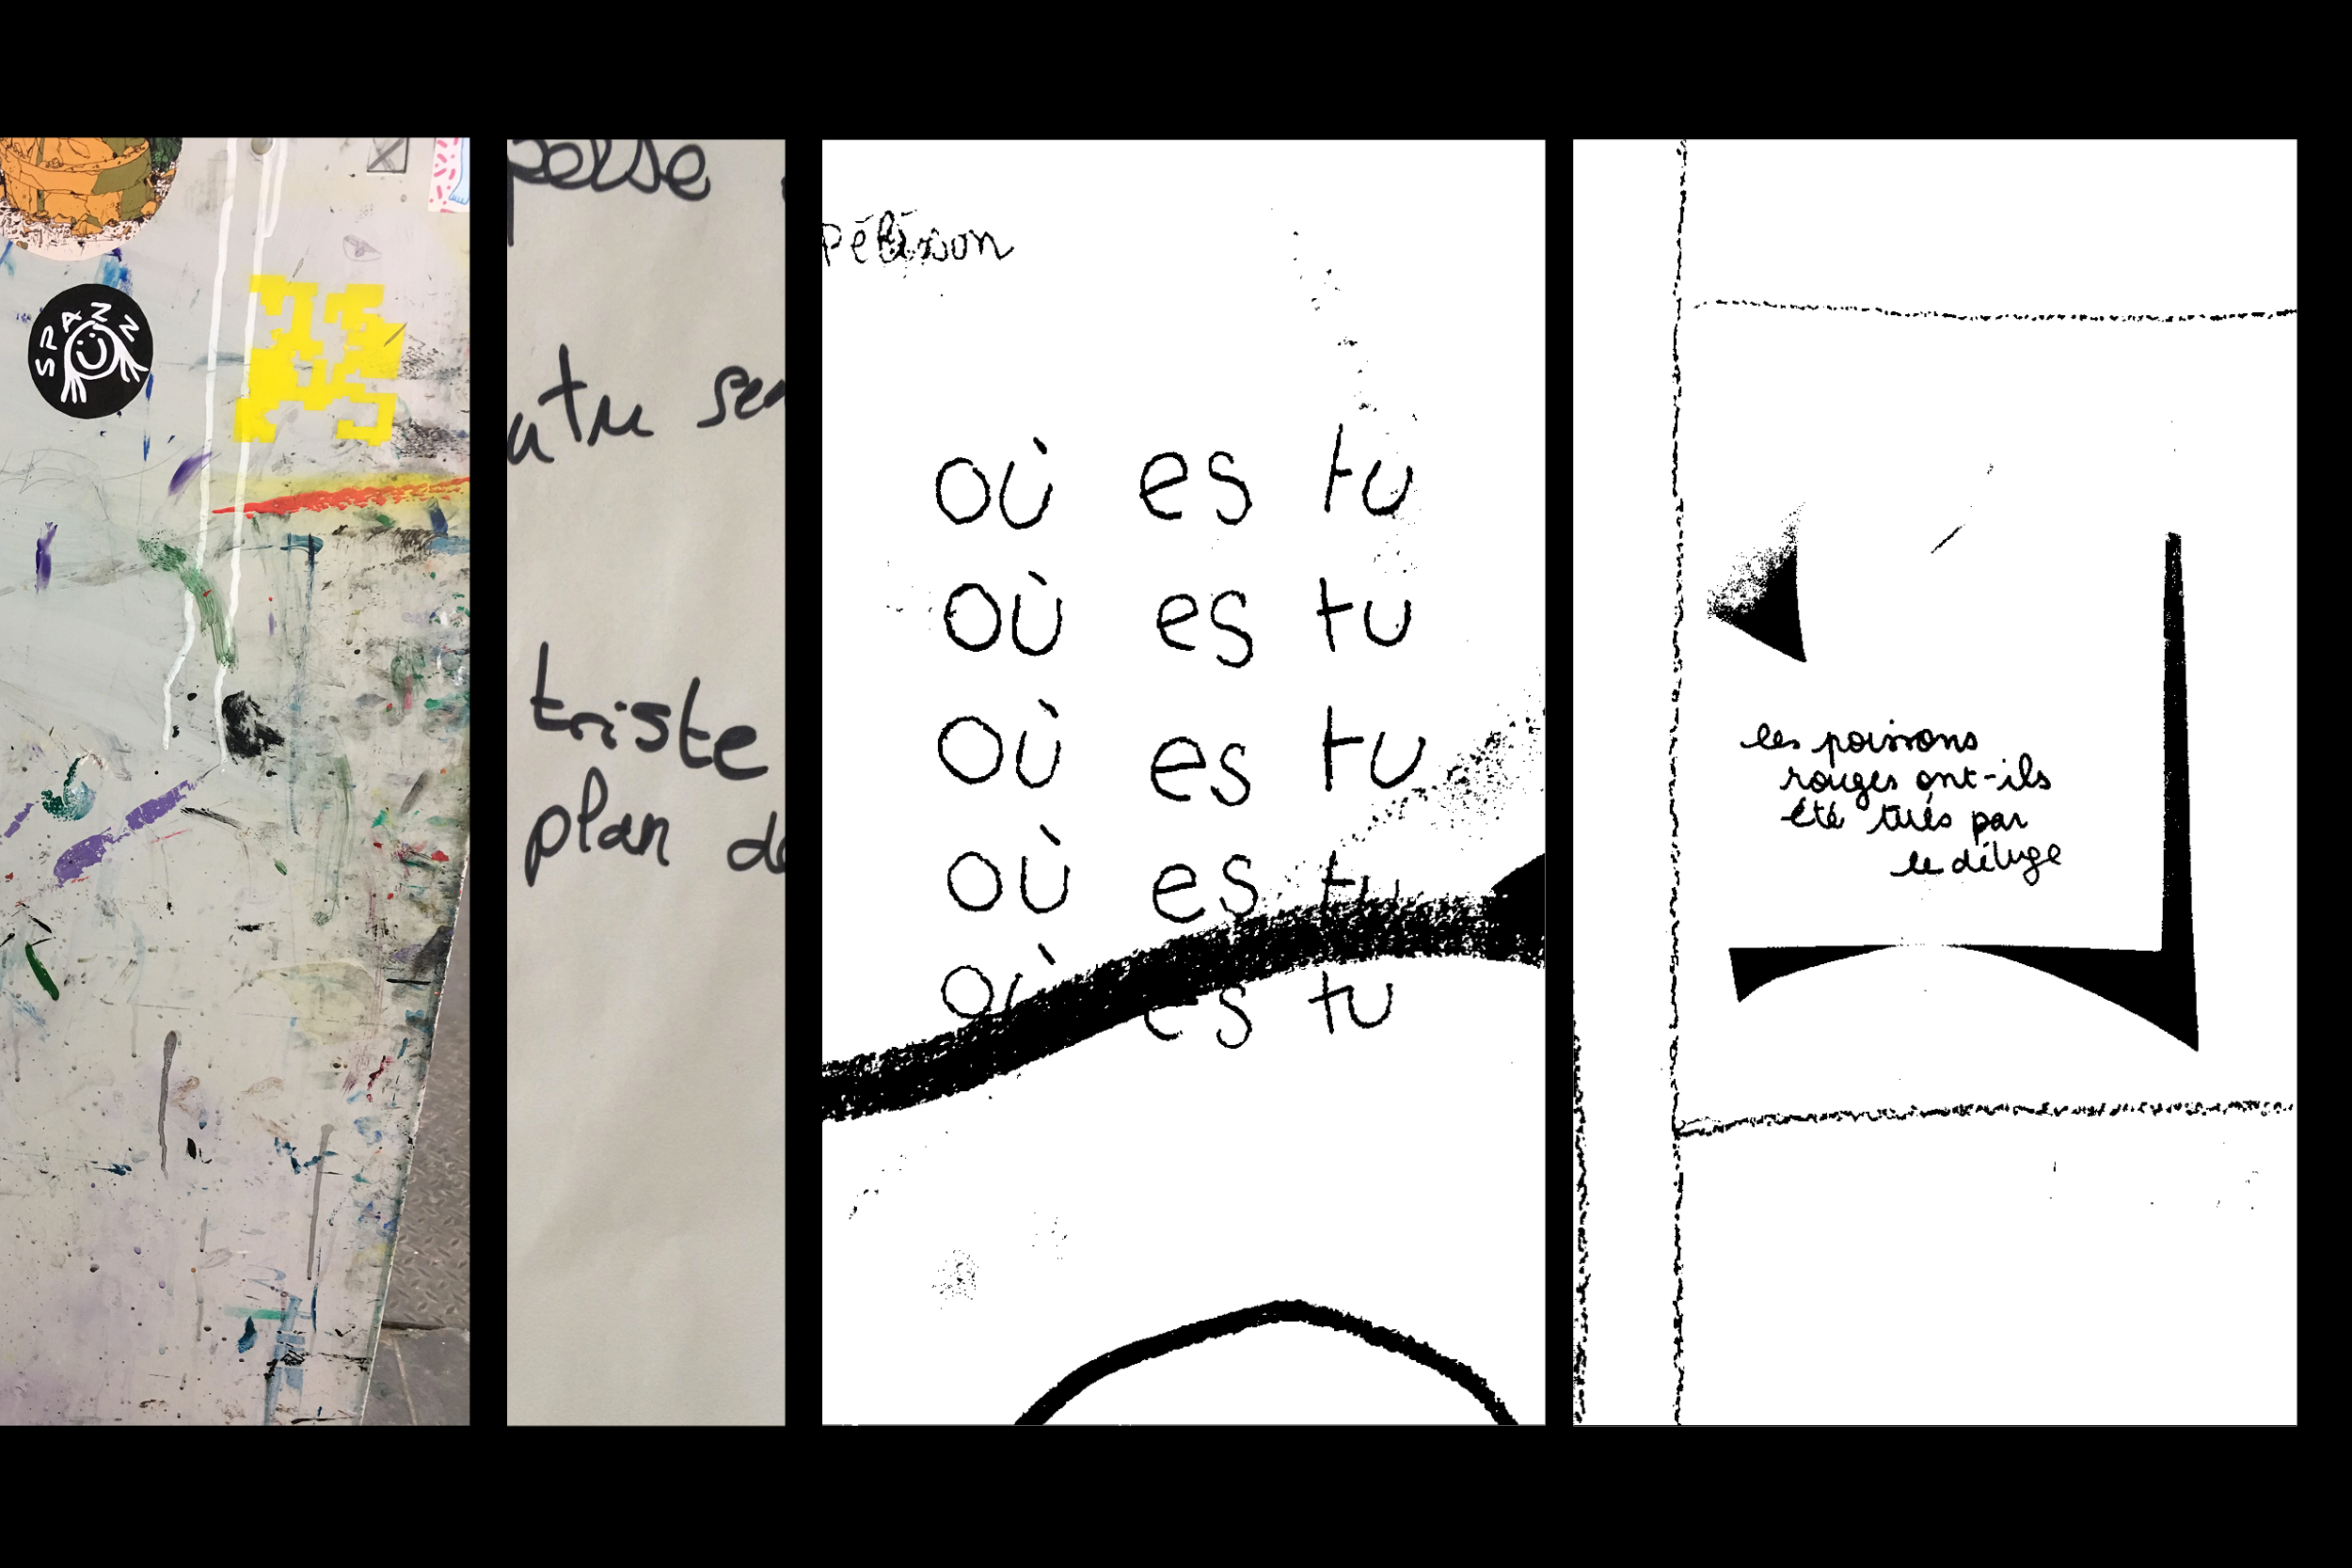 SPANN
triste
plan
où es tu
où es tu
où es tu
où es tu
où es tu
les poissons
rouges ont-ils
été tués par
le déluge